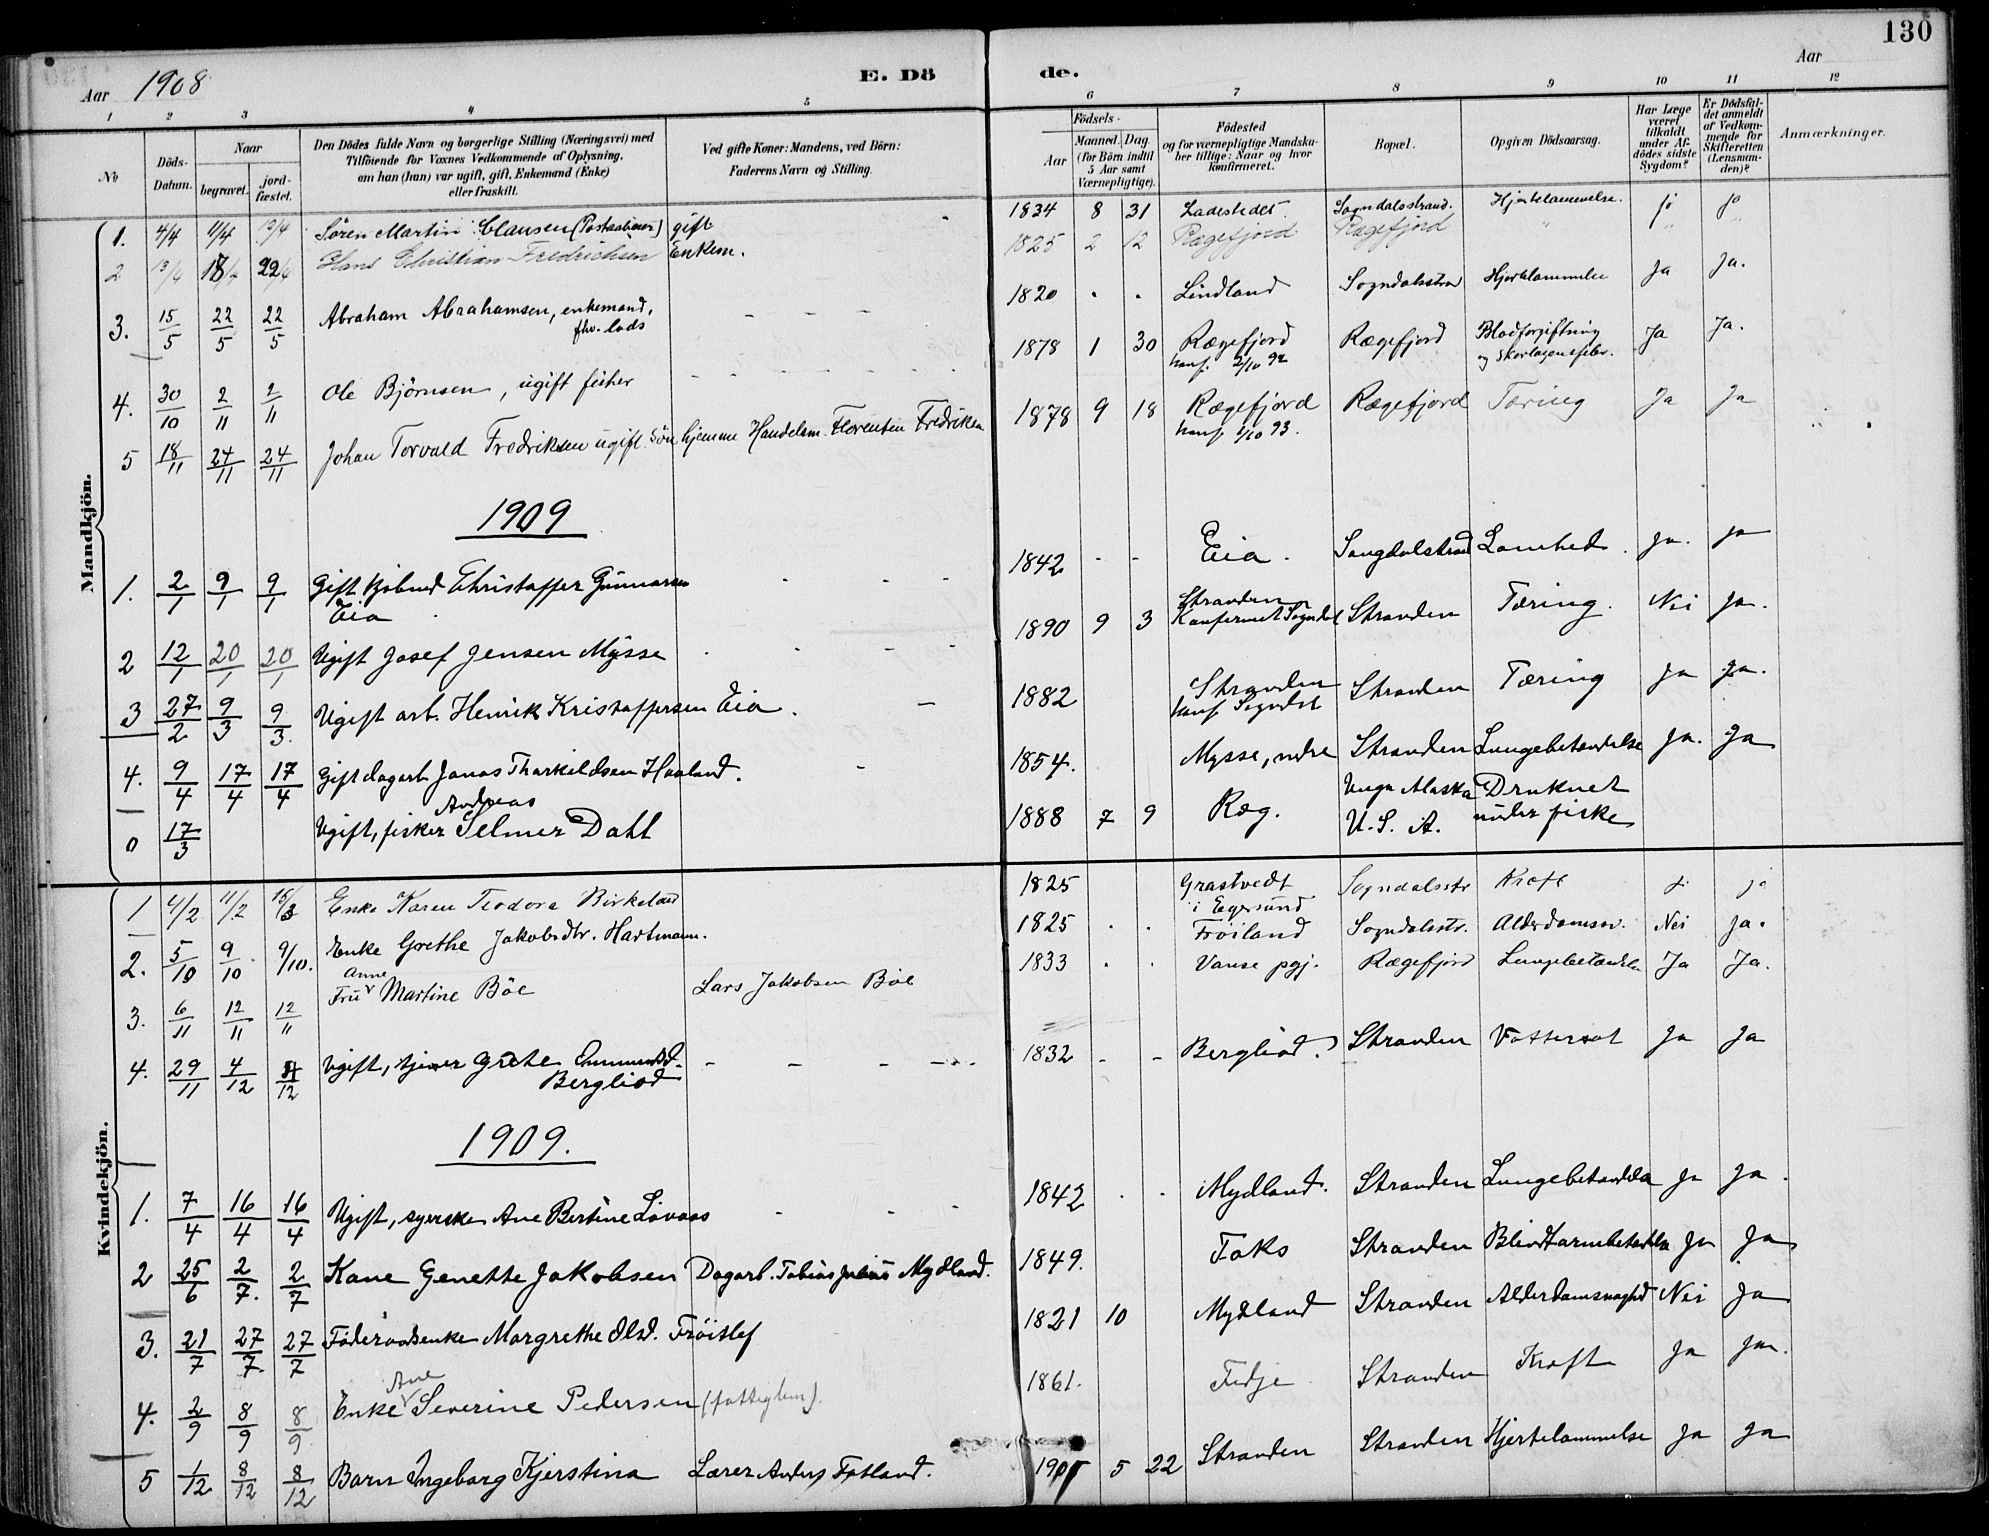 130
Aar 1908 E. Dö de. Aar
1 2 3 4 5 6 7 8 9 10 11 12
№ Döds-Datum. Naar begravet. jord-fæstet. Den Dödes fulde Navn og borgerlige Stilling (Næringsvei) med Tilföiende for Voxnes Vedkommende af Oplysning, om han (hun) var ugift, gift, Enkemand (Enke) eller fraskilt. Ved gifte Koner: Mandens, ved Börn: Faderens Navn og Stilling. Födsels- Aar Maaned. Dag. (for Börn indtil 5 Aar samt Værnepligtige). Födested og for værnepligtige Mandska-ber tillige: Naar og hvor konfirmeret. Bopæl. Opgiven Dödsaarsag. Har Læge været tilkaldt under Af-dödes sidste Sygdom? Er Dödsfal-det anmeldt af Vedkom-mende for Skifteretten (Lensman-den)? Anmærkninger.
Mandkjön.
1. 4/4 11/4 Søren Martin Clausen (Postaabner) gift 1834 8 31 Ladestedet Sogndalsstrand. Hjertelammelse. ja ja
2 13/4 18/4 22/4 Hans Christian Fredrichsen Enkem. 1825 2 12 Rægefjord Rægefjord " "
3. 15/5 22/5 22/5 Abraham Abrahamsen, enkemand, fhv. lods 1820 Lindland Sogndalsstra Hjertelammelse Ja Ja.
4. 30/10 2/11 2/11 Ole Björnsen, ugift fisker 1878 1 30 Rægefjord konf. 2/10 92 Rægefjord Blodforgiftning og Skarlagensfeber. Ja Ja.
5 18/11 24/11 24/11 Johan Torvald Fredriksen ugift. Søn hjemme Handelsm. Florentin Fredriksen 1878 9 18 Rægefjord konf. 1/10 93. Rægefjord Tæring Ja Ja
1909
1. 2/1 9/1 9/1 Gift Kjøbmd Christoffer Gunnarsen Eia 1842 - - Eia. Sangdalstrand Lamhed. ja. ja
2 12/1 20/1 20/1 Ugift Josef Jensen Mysse 1890 9 3 Stranden Konfirmert Sogndal Stranden Tæring. Nei ja.
3 27/2 9/3 9/3. Ugift arb. Henrik Kristoffersen Eia. 1882 Stranden konf. Sogndal Stranden Tæring ja ja.
4. 9/4 17/4 17/4 Gift dagarb Jonas Tharkildsen Haaland. 1854. Mysse, ndre Stranden Lungebetændelse ja. Ja
0 17/3 Ugift, fisker Andreas Selmer Dahl 1888 7 9 Ræg. Unga Alaska U.S.A. Druknet under fiske
Kvindekjön.
1 4/2 11/2 15/3 Enke Karen Teodora Birkeland 1825 Grastvedt i Egersund Sogndalsstr Kræft ja ja
2. 5/10 9/10 9/10. Enke Grethe Jakobsdtr. Hartmann. 1825 Frøiland Sogndalsstr. Alderdomssv. Nei Ja.
3. 6/11 12/11 12/11 Fru Anne Martine Böe Lars Jakobsen Böe 1833 Vanse pgj. Rægefjord Lungebetændelse Ja Ja.
4. 29/11 4/12 4/12 Ugift, tjener Grete Ommundsd. Bergliod 1832 - - Bergliod. Stranden Vattersot Ja Ja
1909.
1. 7/4 16/4 16/4 Ugift, syerske Ane Bertine Lovaas 1842 Mydland. Stranden Lungebetændelse Ja Ja.
2 25/6 2/7. 2/7 Kone Genette Jakobsen Dagarb. Tobias Julius Mydland. 1849. Foks Stranden Blindtarmbetændelse Ja Ja
3. 21/7 27/7. 27/7 Føderaadsenke Margrethe Olsd. Frøitlef 1821 10 Mydland Stranden Alderdomssvaghed Nei Ja
4. 2/9 8/9 8/9 Enke Ane Severine Pedersen (fattiglem). 1861. Fidje Stranden Kræft Ja Ja.
5 1/12 8/12 8/12 Barn Ingeborg Kjerstina Lærer Anders Fotland. 5 22 Stranden Stranden Hjertelammelse Ja Ja